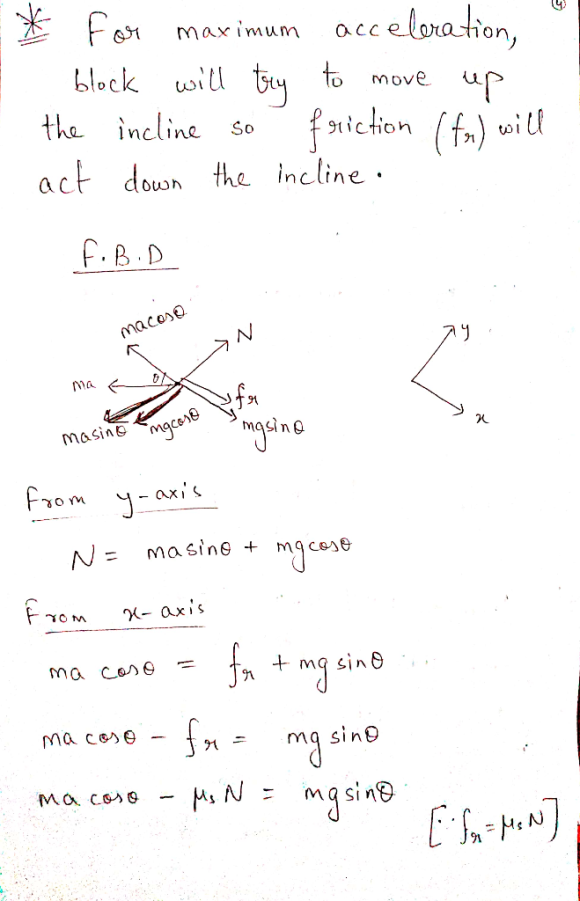 (4)
* For maximum acceleration,
block will try to move up
the incline so friction (fr) will
act down the incline.
F.B.D
macosθ
N
y
ma
θ
fr
masinθ
mgcosθ
mgsinθ
x
From y-axis
N = masinθ + mgcosθ
From x-axis
ma cosθ = fr + mg sinθ
ma cosθ - fr = mg sinθ
ma cosθ - μs N = mg sinθ
[∵ fr = μs N]